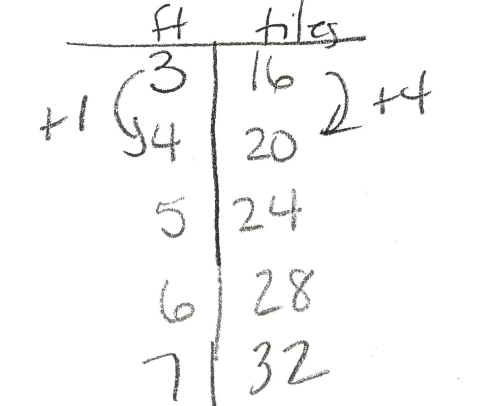 ft tiles
3 16
+1 +4
4 20
5 24
6 28
7 32